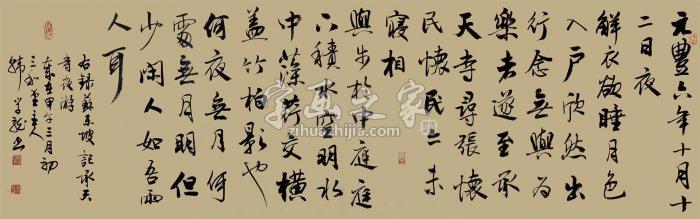 元豐六年十月十
二日夜
解衣欲睡月色
入戶欣然出
行念無與為
樂者遂至承
天寺尋張懷
民懷民亦未
寢相
與步於中庭庭
下積水空明水
中藻荇交橫
蓋竹柏影也
何夜無月何
處無月明但
少閑人如吾兩
人耳
右錄蘇東坡記承天
寺夜游
歲在甲午三月初
三
字画之家
zihuazhijia.com